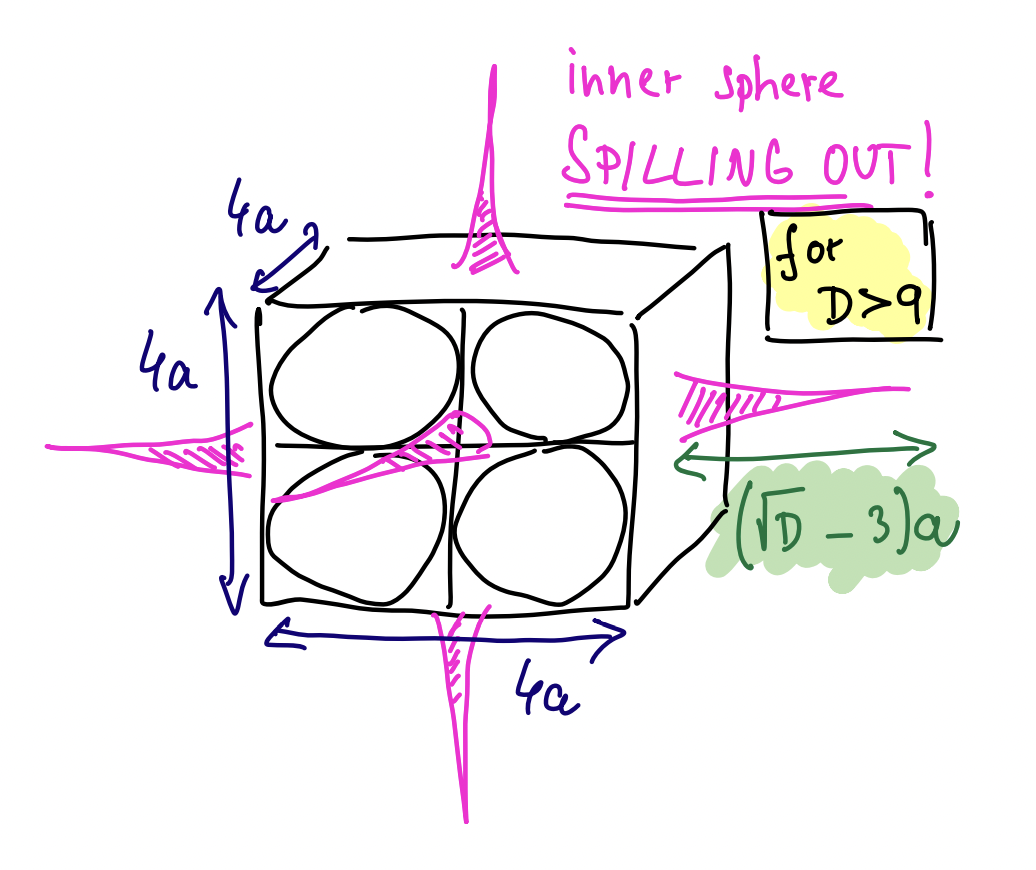 inner sphere
SPILLING OUT!
for
D>9
4a
4a
(√D - 3)a
4a